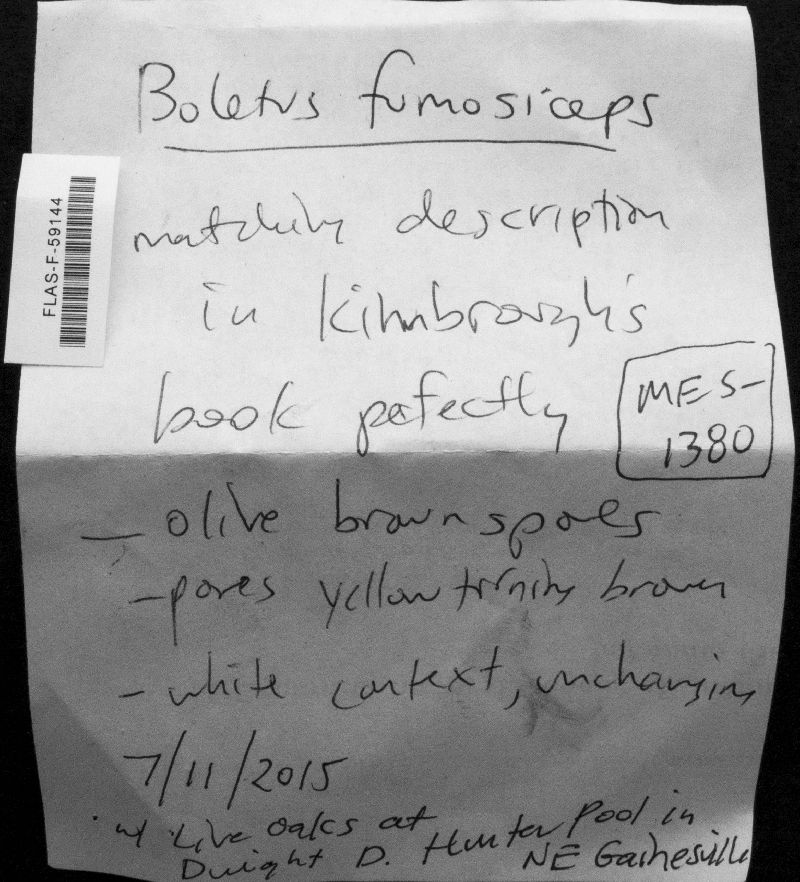 Boletus fumosiceps
FLAS-F-59144
matching description
in Kimbrough's
book perfectly
MES-
1380
- olive brown spores
- pores yellow turning brown
- white context, unchanging
7/11/2015
· w/ Live oaks at
Dwight D. Hunter Pool in
NE Gainesville